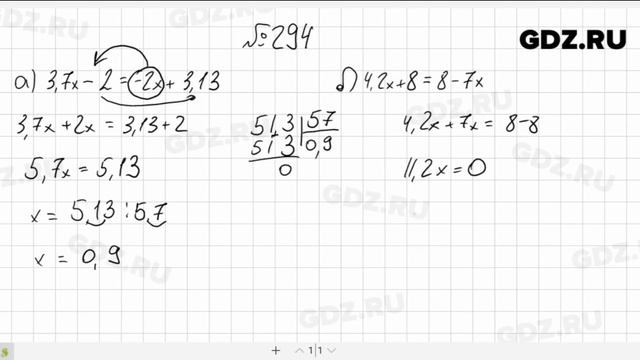 №294
GDZ.RU
а) 3,7x - 2 = -2x + 3,13
3,7x + 2x = 3,13 + 2
5,7x = 5,13
x = 5,13 : 5,7
x = 0,9
51,3 | 57
51 3 | 0,9
0
б) 4,2x + 8 = 8 - 7x
4,2x + 7x = 8 - 8
11,2x = 0
GDZ.RU
GDZ.RU
GDZ.RU
GDZ.RU
GDZ.RU
GDZ.RU
1|1